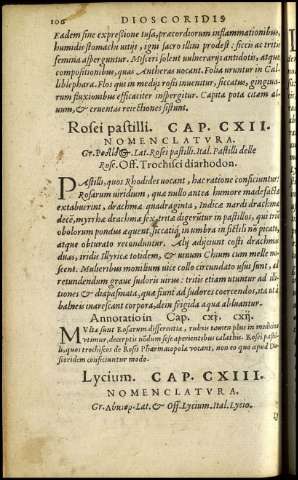 106 DIOSCORIDIS
Eadem sine expressione tusa, præcordiorum inflammationibus,
humidis stomachi vitijs, igni sacro illini prodest: sicci ac triti
femina asperguntur. Misceri solent vulnerarijs antidotis, atque
compositionibus, quas Antheras vocant. Folia uruntur in Cal
liblephara. Flos qui in medijs rosis invenitur, siccatus, gingiva-
rum fluxionibus efficaciter inspergitur. Capita pota citam al
vum, & cruentas reiectiones sistunt.
Rosei pastilli. CAP. CXII.
NOMENCLATVRA.
Lat. Rosei pastilli. Ital. Pastilli delle
Rose. Off. Trochisci diarhodon.
PAstilli, quos Rhodides vocant, hac ratione conficiuntur:
Rosarum viridium, quæ nullo antea humore madefactæ
extabuerint, drachmæ quadraginta, Indicæ nardi drachmæ
decē, myrrhæ drachmæ sex, trita digeruntur in pastillos, qui triū
obolorum pondus æquent, siccatiq́, in umbra in fictili nō picato,
atque obturato reconduntur. Alij adijciunt costi drachmas
duas, iridis Illyricæ totidem, & vinum Chium cum melle mi-
scent. Mulieribus monilium vice collo circundato usus sunt, ad
retundendum grave sudoris virus: tritis etiam utuntur ad illi-
tiones & diapasmata, quæ sunt ad sudores coërcendos, ita ut à
balneis inarescant corpora, dein frigida aqua abluantur.
Annotatio in Cap. cxj. cxij.
MVltæ sunt Rosarum differentiæ, rubris tamen plus in medicina
vtimur, decerptis nōdum sese aperientibus calathis. Rosei pastil-
li, quos trochiscos de Rosis Pharmacopolæ vocant, non eo quo apud Di-
oscoridem conficiuntur modo.
Lycium. CAP. CXIII.
NOMENCLATVRA.
Gr. Λύκιον. Lat. & Off. Lycium. Ital. Lycio.